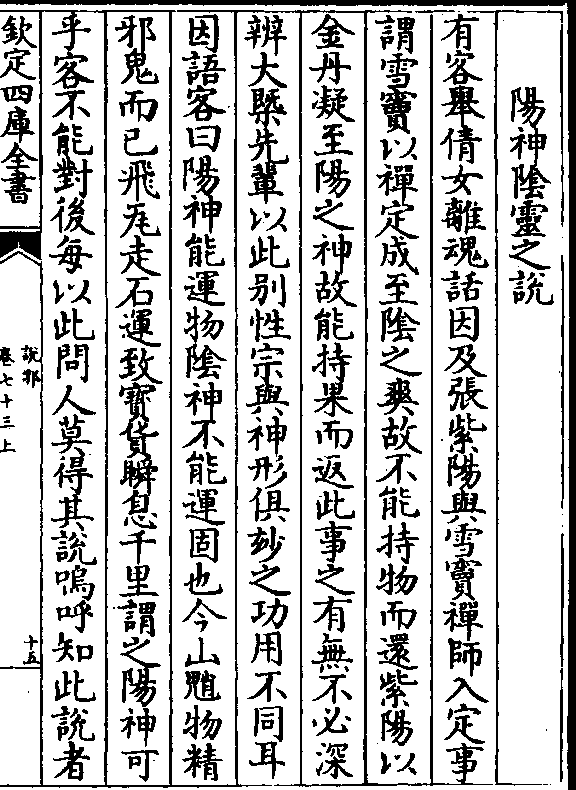 陽神陰靈之說
有客舉倩女離魂話因及張紫陽與雪竇禪師入定事
謂雪竇以禪定成至陰之爽故不能持物而還紫陽以
金丹凝至陽之神故能持果而返此事之有無不必深
辨大槩先輩以此别性宗與神形俱玅之功用不同耳
因語客曰陽神能運物陰神不能運固也今山魈物精
邪鬼而已飛瓦走石運致寳貨瞬息千里謂之陽神可
乎客不能對後每以此問人莫得其說嗚呼知此說者
欽定四庫全書
說郛
卷七十三上
十五